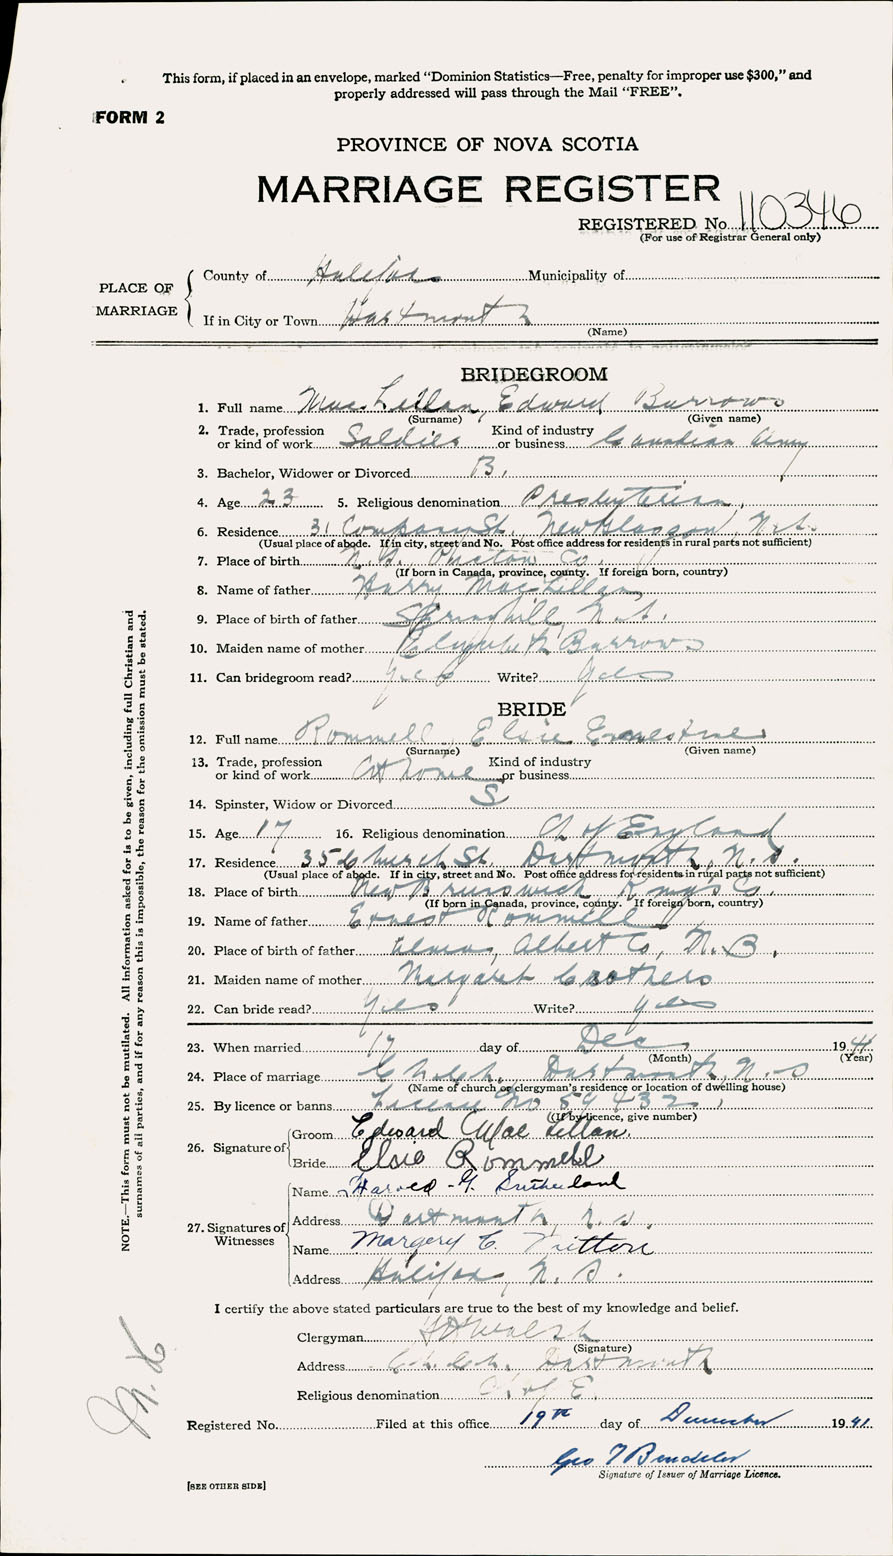 This form, if placed in an envelope, marked “Dominion Statistics—Free, penalty for improper use $300,” and
properly addressed will pass through the Mail “FREE”.
FORM 2
PROVINCE OF NOVA SCOTIA
MARRIAGE REGISTER
REGISTERED No. 110346
(For use of Registrar General only)
PLACE OF MARRIAGE
County of Halifax Municipality of
If in City or Town Dartmouth
(Name)
BRIDEGROOM
1. Full name MacLellan, Edward Burrows
(Surname) (Given name)
2. Trade, profession or kind of work Soldier Kind of industry or business Canadian Army
3. Bachelor, Widower or Divorced B.
4. Age 23 5. Religious denomination Presbyterian
6. Residence 31 St. New Glasgow, N.S.
(Usual place of abode. If in city, street and No. Post office address for residents in rural parts not sufficient)
7. Place of birth N.S. Co.
(If born in Canada, province, county. If foreign born, country)
8. Name of father Harry MacLellan
9. Place of birth of father Springhill, N.S.
10. Maiden name of mother Elizabeth Burrows
11. Can bridegroom read? Yes Write? Yes
BRIDE
12. Full name Rommell, Elsie Ernestine
(Surname) (Given name)
13. Trade, profession or kind of work At home Kind of industry or business
14. Spinster, Widow or Divorced S
15. Age 17 16. Religious denomination Ch of England
17. Residence 35 Church St. Dartmouth, N.S.
(Usual place of abode. If in city, street and No. Post office address for residents in rural parts not sufficient)
18. Place of birth New Brunswick Kings Co.
(If born in Canada, province, county. If foreign born, country)
19. Name of father Ernest Rommell
20. Place of birth of father Alma, Albert Co, N.B.
21. Maiden name of mother Margaret Crothers
22. Can bride read? Yes Write? Yes
23. When married 17 day of Dec 1941
(Month) (Year)
24. Place of marriage Dartmouth, N.S
(Name of church or clergyman's residence or location of dwelling house)
25. By licence or banns License No 59432
(If by licence, give number)
26. Signature of
Groom Edward MacLellan.
Bride Elsie Rommell
27. Signatures of Witnesses
Name Harold G. Sutherland
Address Dartmouth, N.S.
Name Margery C. Tritton
Address Halifax, N.S.
I certify the above stated particulars are true to the best of my knowledge and belief.
Clergyman Walsh
(Signature)
Address Dartmouth
Religious denomination Ch of E.
Registered No. Filed at this office 19th day of December 1941
Geo T Bendeler
Signature of Issuer of Marriage Licence.
[SEE OTHER SIDE]
NOTE.—This form must not be mutilated. All information asked for is to be given, including full Christian and
surnames of all parties, and if for any reason this is impossible, the reason for the omission must be stated.